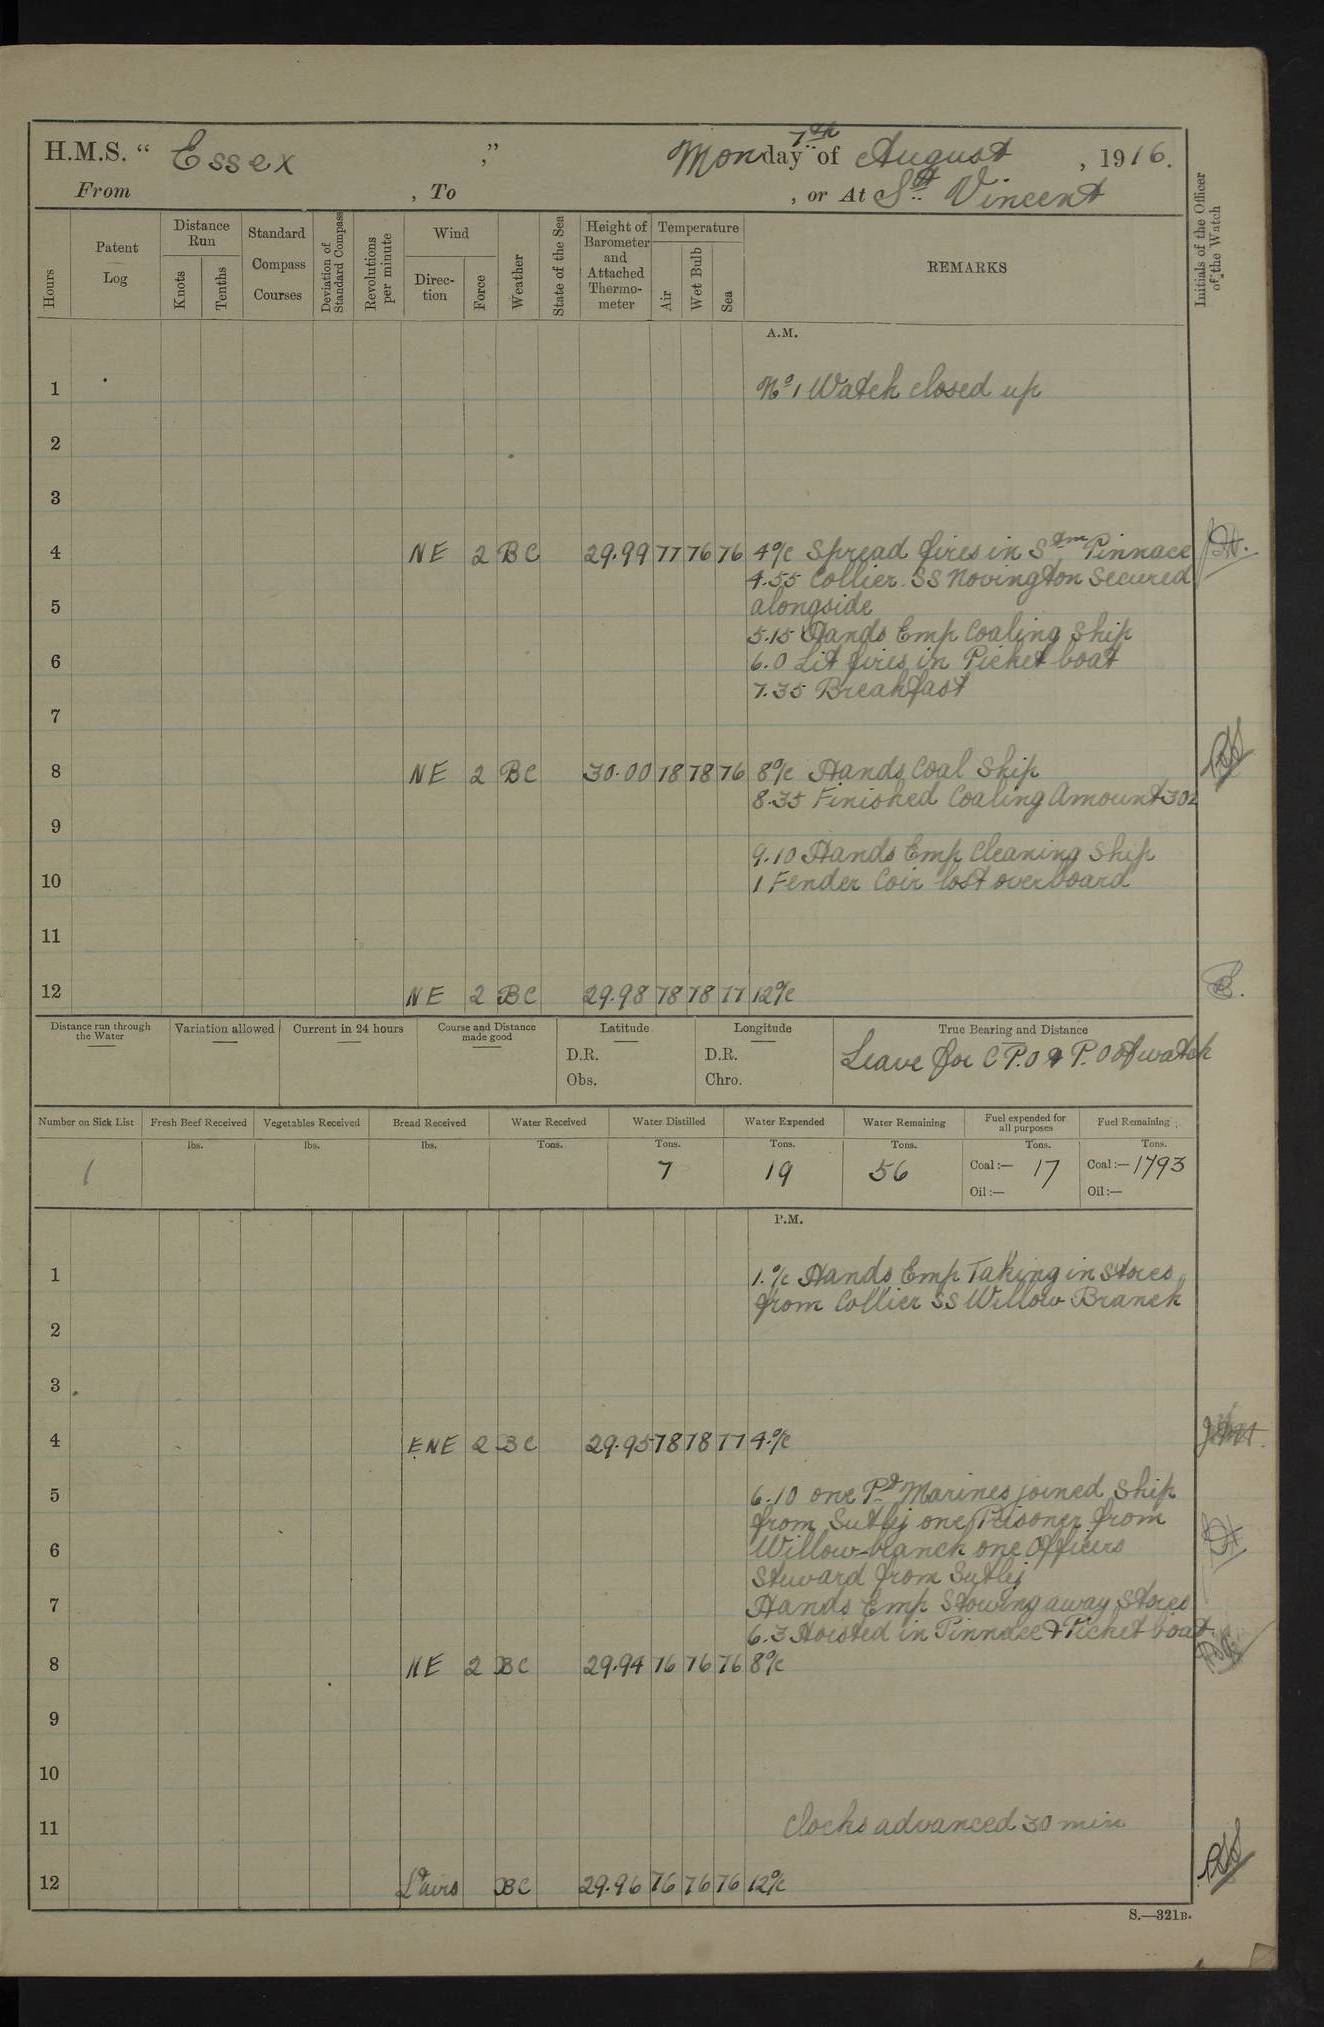 H.M.S. “ Essex ,” Monday 7th of August , 1916.
From , To , or At St. Vincent
Hours
Patent Log
Distance Run
Knots
Tenths
Standard Compass Courses
Deviation of Standard Compass
Revolutions per minute
Wind
Direction
Force
Weather
State of the Sea
Height of Barometer and Attached Thermometer
Temperature
Air
Wet Bulb
Sea
REMARKS
Initials of the Officer of the Watch
A.M.
1 No 1 Watch closed up
2
3
4 NE 2 BC 29.99 77 76 76 4o/c Spread fires in Stm Pinnace
4.55 Collier SS Novington Secured
5 alongside
5.15 Hands Emp Coaling Ship
6 6.0 Lit fires in Picket boat
7.35 Breakfast
7
8 NE 2 BC 30.00 78 78 76 8o/c Hands Coal Ship
8.35 Finished Coaling Amount 302
9
9.10 Hands Emp Cleaning Ship
10 1 Fender Coir lost overboard
11
12 NE 2 BC 29.98 78 78 77 12o/c
Distance run through the Water
Variation allowed
Current in 24 hours
Course and Distance made good
Latitude
D.R.
Obs.
Longitude
D.R.
Chro.
True Bearing and Distance
Leave for C P.O & P.O of watch
Number on Sick List Fresh Beef Received Vegetables Received Bread Received Water Received Water Distilled Water Expended Water Remaining Fuel expended for all purposes Fuel Remaining
lbs. lbs. lbs. Tons. Tons. Tons. Tons. Tons. Tons.
1 7 19 56 Coal:— 17 Coal:— 1793
Oil:— Oil:—
P.M.
1 1.o/c Hands Emp Taking in Stores
from Collier SS Willow Branch
2
3
4 ENE 2 BC 29.95 78 78 77 4o/c
5 6.10 one Pt Marines joined Ship
from Sutlej one Prisoner from
6 Willow-branch one Officers
Steward from Sutlej
7 Hands Emp Stowing away Stores
6.3 Hoisted in Pinnace & Picket boat
8 NE 2 BC 29.94 76 76 76 8o/c
9
10
11 Clocks advanced 30 min
12 Lt airs BC 29.96 76 76 76 12o/c
S.—321B.